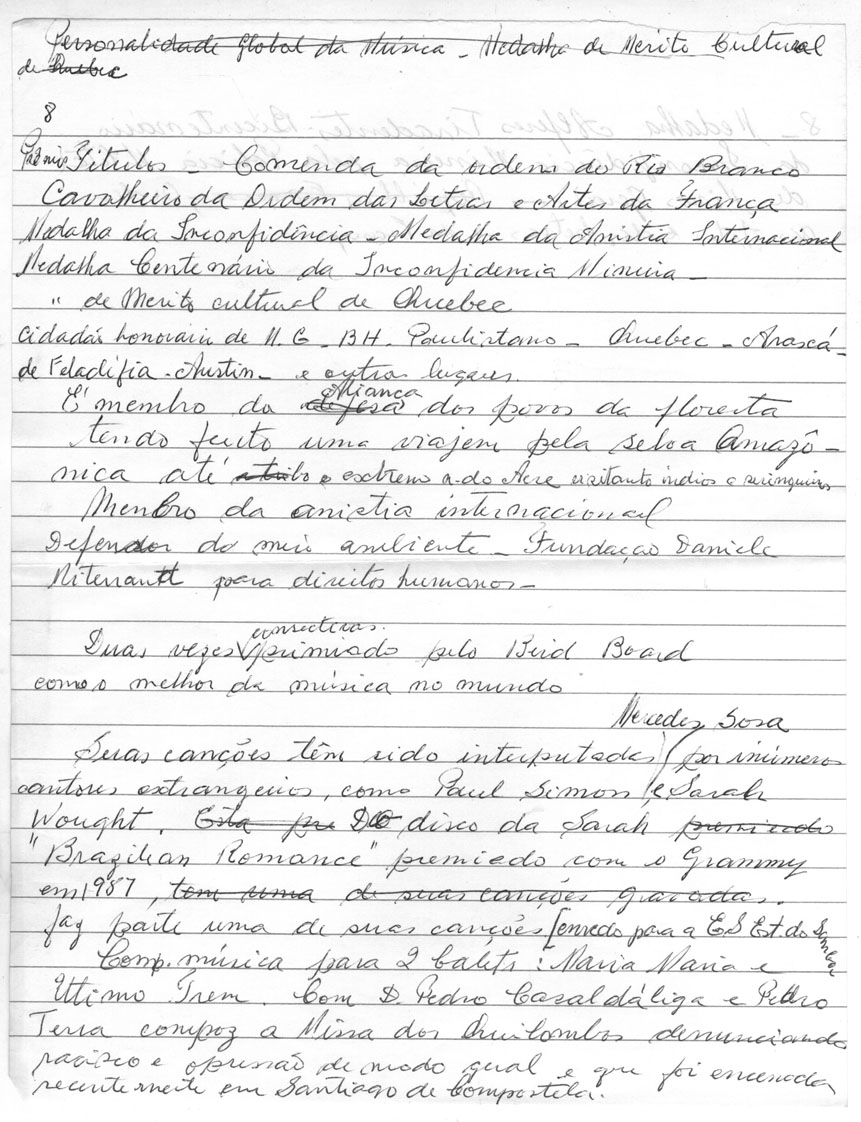 Personalidade Global da Música - Medalha de Merito Cultural
de Quebec
8
Prêmios Titulos - Comenda da ordem do Rio Branco
Cavalheiro da Ordem das Letras e Artes da França
Medalha da Inconfidência - Medalha da Anistia Internacional
Medalha Centenário da Inconfidencia Mineira -
" de Merito cultural de Quebec
Cidadão honorário de M.G - BH - Paulistano - Quebec - Araxá -
de Feladífia - Austin - e outros lugares.
Aliança
É membro da defesa dos povos da floresta
tendo feito uma viajem pela selva Amazô-
nica até o extremo do Acre visitanto indios e seringueiros
Menbro da anistia internacional
Defensor do meio ambiente - Fundaçao Daniele
Miterrantt para direitos humanos -
consectivas.
Duas vezes premiado pelo Beid Board
como o melhor da música no mundo
Mercedes Sosa
Suas canções têm sido interputadas por inúmeros
cantores extrangeiros, como Paul Simon e Sarah
Wought. Esta pre DO disco da Sarah premiado
"Brazilian Romance" premiado com o Grammy
em 1987, tem uma de suas canções gravadas.
faz parte uma de suas canções [enredo para a E.S Est. do Samba
Comp. música para 2 balets: Maria Maria e
Ultimo Trem. Com D. Pedro Casaldáliga e Pedro
Terra compoz a Missa dos Quilombos denunciando
racisco e opressão de modo geral e que foi encenada
recentemente em Santiago de Compostela.